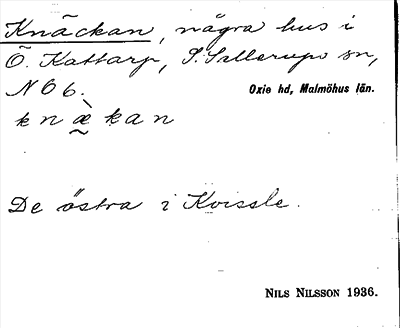 Knäckan, några hus i
Ö. Kattarp, S. Sallerups sn,
N 6 b. Oxie hd, Malmöhus län.
k n æ̀ k a n
De östra i Kvissle.
NILS NILSSON 1936.